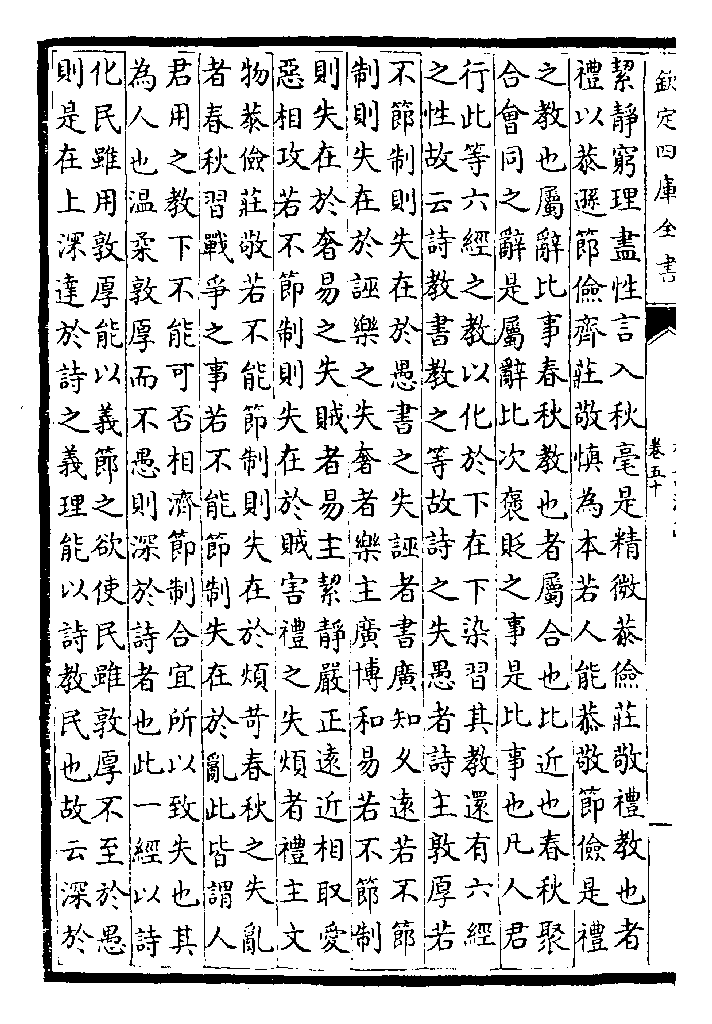 欽定四庫全書
卷五十
絜靜窮理盡性言入秋毫是精微恭儉莊敬禮教也者
禮以恭遜節儉齊莊敬慎為本若人能恭敬節儉是禮
之教也屬辭比事春秋教也者屬合也比近也春秋聚
合會同之辭是屬辭比次褒貶之事是比事也凡人君
行此等六經之教以化於下在下染習其教還有六經
之性故云詩教書教之等故詩之失愚者詩主敦厚若
不節制則失在於愚書之失誣者書廣知久遠若不節
制則失在於誣樂之失奢者樂主廣博和易若不節制
則失在於奢易之失賊者易主絜靜嚴正遠近相取愛
惡相攻若不節制則失在於賊害禮之失煩者禮主文
物恭儉莊敬若不能節制則失在於煩苛春秋之失亂
者春秋習戰爭之事若不能節制失在於亂此皆謂人
君用之教下不能可否相濟節制合宜所以致失也其
為人也温柔敦厚而不愚則深於詩者也此一經以詩
化民雖用敦厚能以義節之欲使民雖敦厚不至於愚
則是在上深達於詩之義理能以詩教民也故云深於